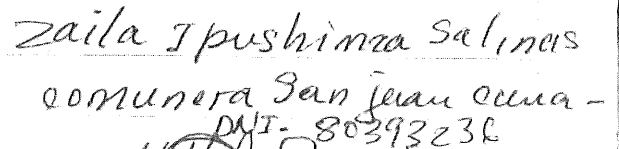 Zaila Ipushima Salinas
comunera San juan cuna-
DNI- 80393236